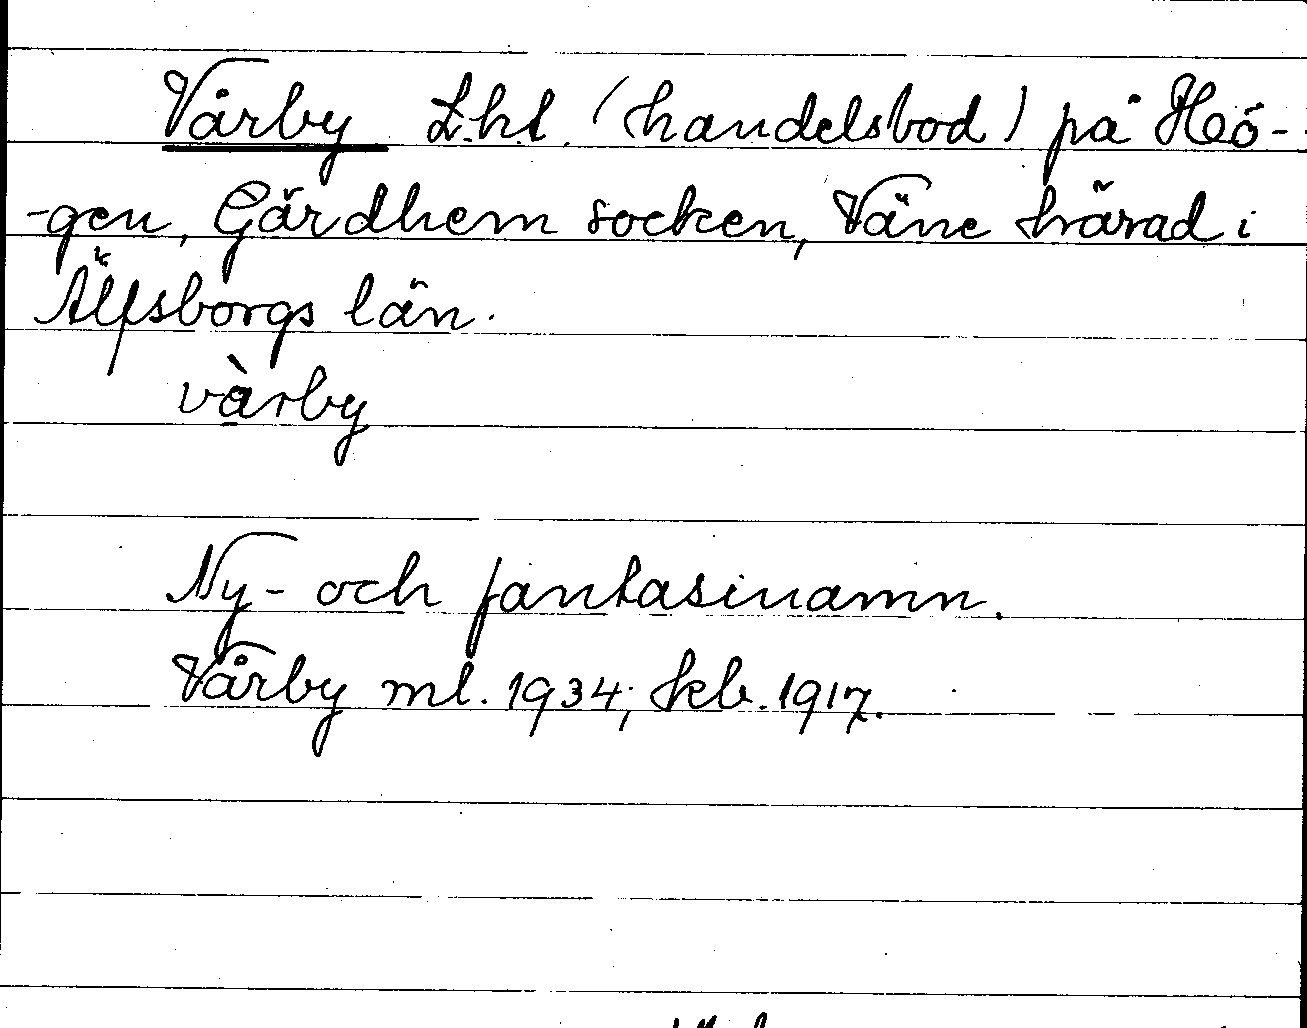 Vårby Lht. (handelsbod) på Hö-
-gen, Gärdhem socken, Väne härad i
Älfsborgs län.
vàrby
Ny- och fantasinamn.
Vårby ml. 1934; skb. 1917.